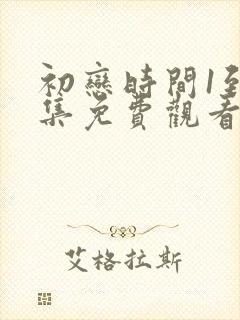 初戀時間1至
集免費觀看
艾格拉斯